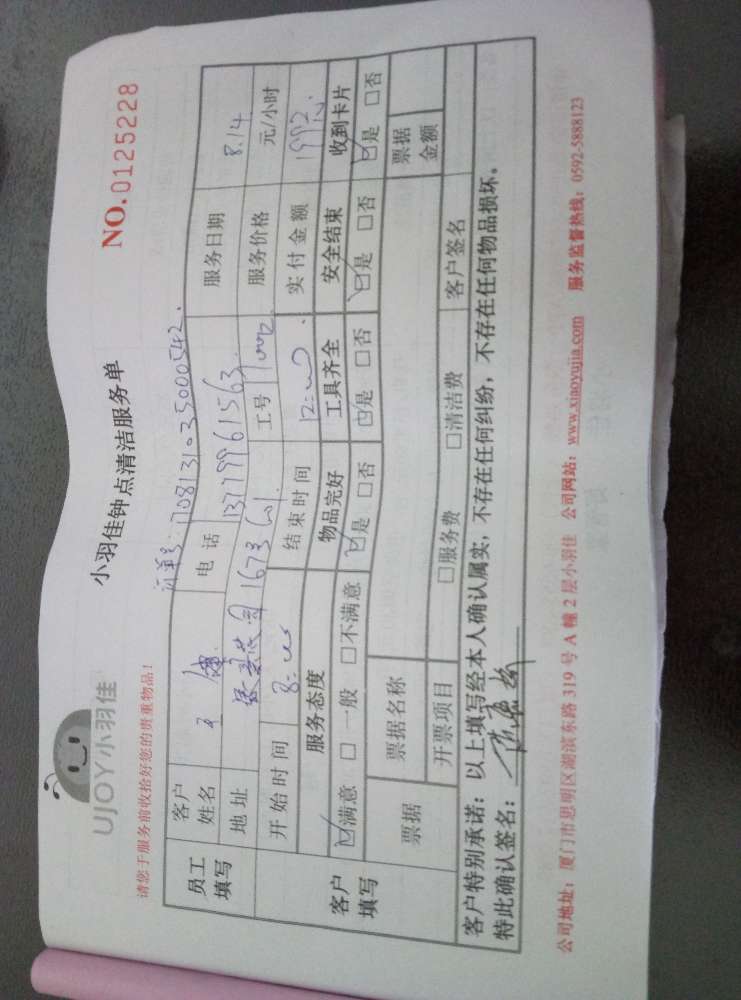 UJOY小羽佳
小羽佳钟点清洁服务单
NO.0125228
请您于服务前收拾好您的贵重物品!
订单号:
员工填写
客户姓名 王
电话 13799961563
服务日期 8.14
地址 1673
工号 1002
服务价格 元/小时
开始时间 8:00
结束时间 12:00
实付金额
客户填写
服务态度 物品完好 工具齐全 安全结束 收到卡片
☑满意 □一般 □不满意 ☑是 □否 ☑是 □否 ☑是 □否 ☑是 □否
票据 票据名称 票据金额
开票项目 □服务费 □清洁费 客户签名
客户特别承诺:以上填写经本人确认属实,不存在任何纠纷,不存在任何物品损坏。
特此确认签名:
公司地址:厦门市思明区湖滨东路 319 号 A 幢 2 层小羽佳 公司网站:www.xiaoyujia.com 服务监督热线:0592-5888123